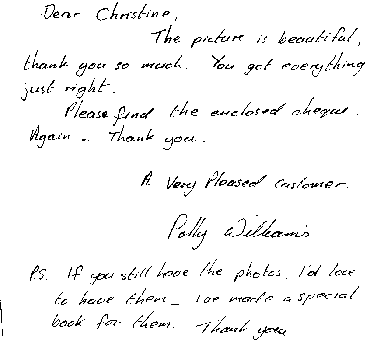 Dear Christine,
The picture is beautiful,
thank you so much. You got everything
just right.
Please find the enclosed cheque.
Again - Thank you.
A Very Pleased customer.
Polly Williams
P.S. If you still have the photos, I'd love
to have them - I've made a special
book for them. Thank you